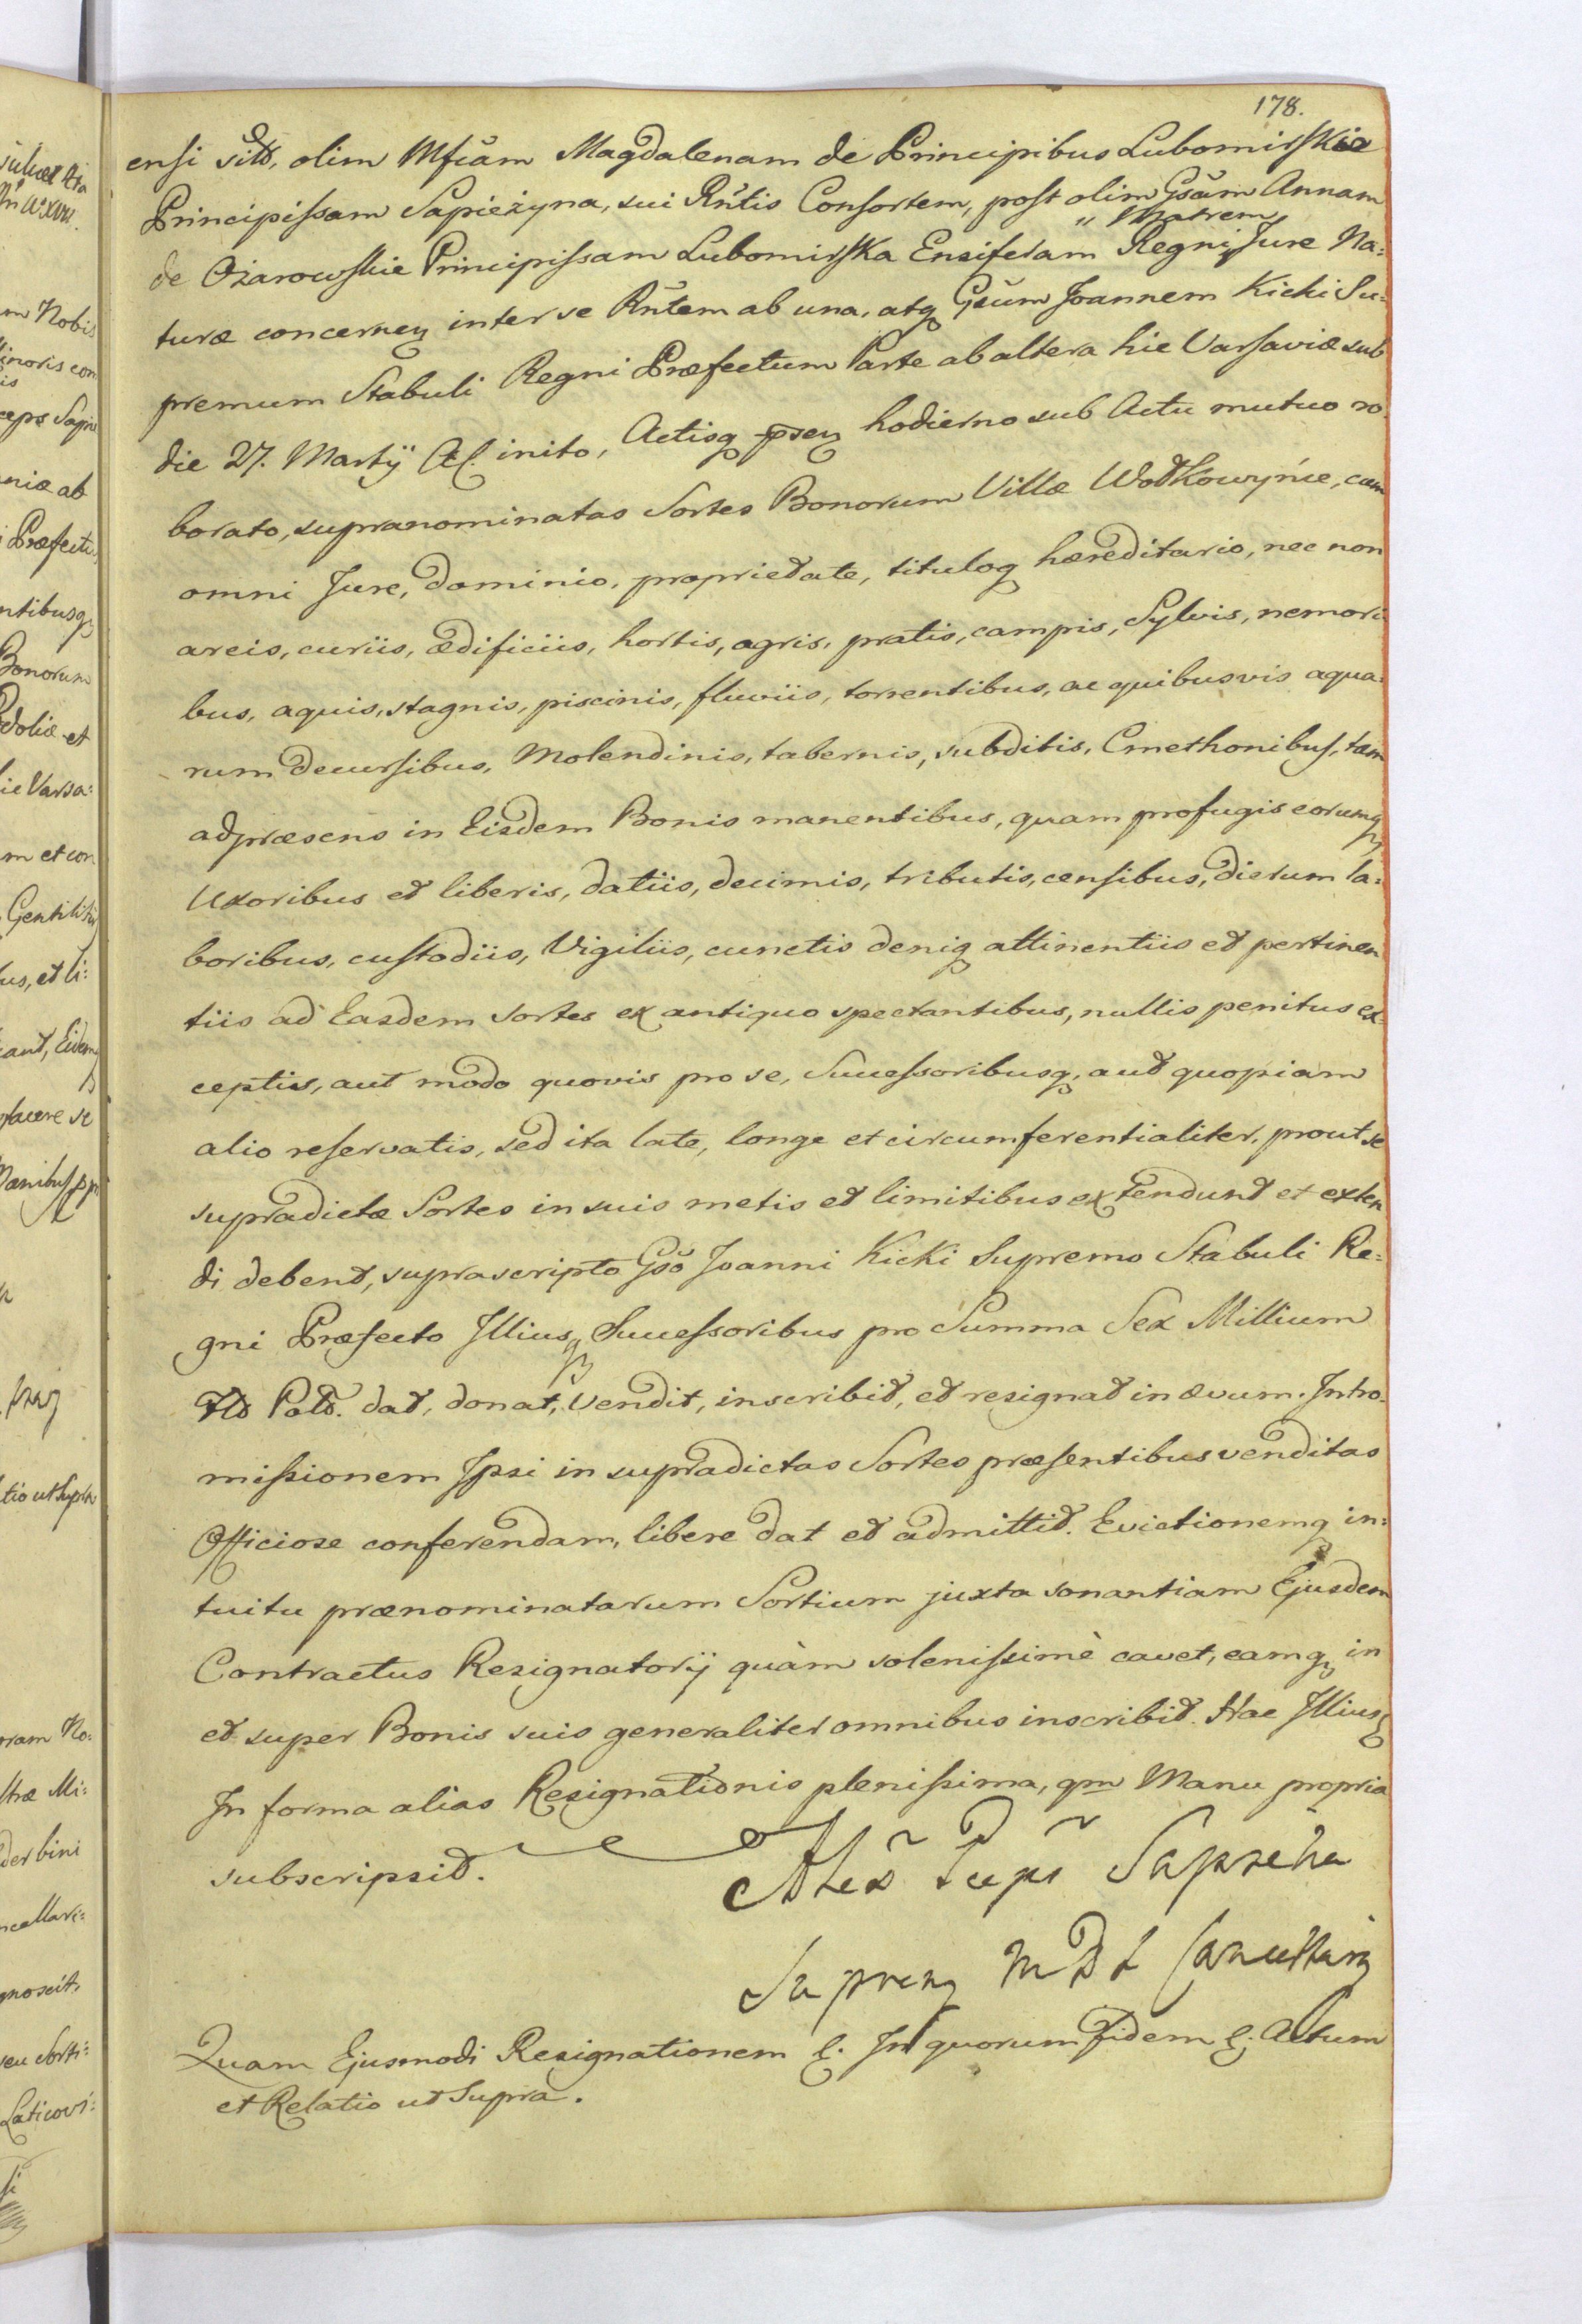 178.
ensi sitã, olim Mfcãm Magdalenam de Principibus Lubomirskie
Principissam Sapieżyna, sui Rñtis Consortem, post olim Gsãm Annam
de Ożarowskie Principissam Lubomirska Ensiferam " Matrem, Regni Jure Na=
turæ concerneñ inter se Rñtem ab una, atq Gsũm Joannem Kicki Su=
premum Stabuli Regni Præfectum Parte ab altera hic Varsaviæ sub
die 27. Martij inito, Actisq pseñ hodierno sub Actu mutuo ro=
borato, supranominatas Sortes Bonorum Villæ Wodkowyńce, cum
omni Jure, dominio, proprietate, tituloq hæreditario, nec non
areis, curiis, ædificiis, hortis, agris, pratis, campis, Sylvis, nemori
bus, aquis, stagnis, piscinis, fluviis, torrentibus, ac quibusvis aqua=
rum decursibus, Molendinis, tabernis, subditis, Cmethonibus, tam
adpræsens in Eisdem Bonis manentibus, quam profugis eorumq
Uxoribus et liberis, datiis, decimis, tributis, censibus, dierum la=
boribus, custodiis, Vigiliis, cunctis deniq attinentiis et pertinen
tiis ad Easdem Sortes ex antiquo spectantibus, nullis penitus ex=
ceptis, aut modo quovis pro se, Successoribusq, aut quopiam
alio reservatis, sed ita late, longe et circumferentialiter, prout se
supradictæ Sortes in suis metis et limitibus extendunt et exten
di debent, suprascripto Gsõ Joanni Kicki Supremo Stabuli Re=
gni Præfecto Illiusq Successoribus pro Summa Sex Millium
Flõ Polõ. dat, donat, Vendit, inscribit, et resignat in ævum. Intro=
missionem Ipsi in supradictas Sortes præsentibus venditas
Officiose conferendam, libere dat et admittit. Evictionemq in=
tuitu prænominatarum Sortium juxta sonantiam Ejusdem
Contractus Resignatorij quàm solenissimè cavet, eamq in
et super Bonis suis generaliter omnibus inscribit. Hac Illiusq
In forma alias Resignationis plenissima, qm Manu propria
subscripsit.
Alex Sapieha
Supremq M D L Cancellariq
Quam Ejusmodi Resignationem &. In quorum fidem &. Actum
et Relatio ut Supra.